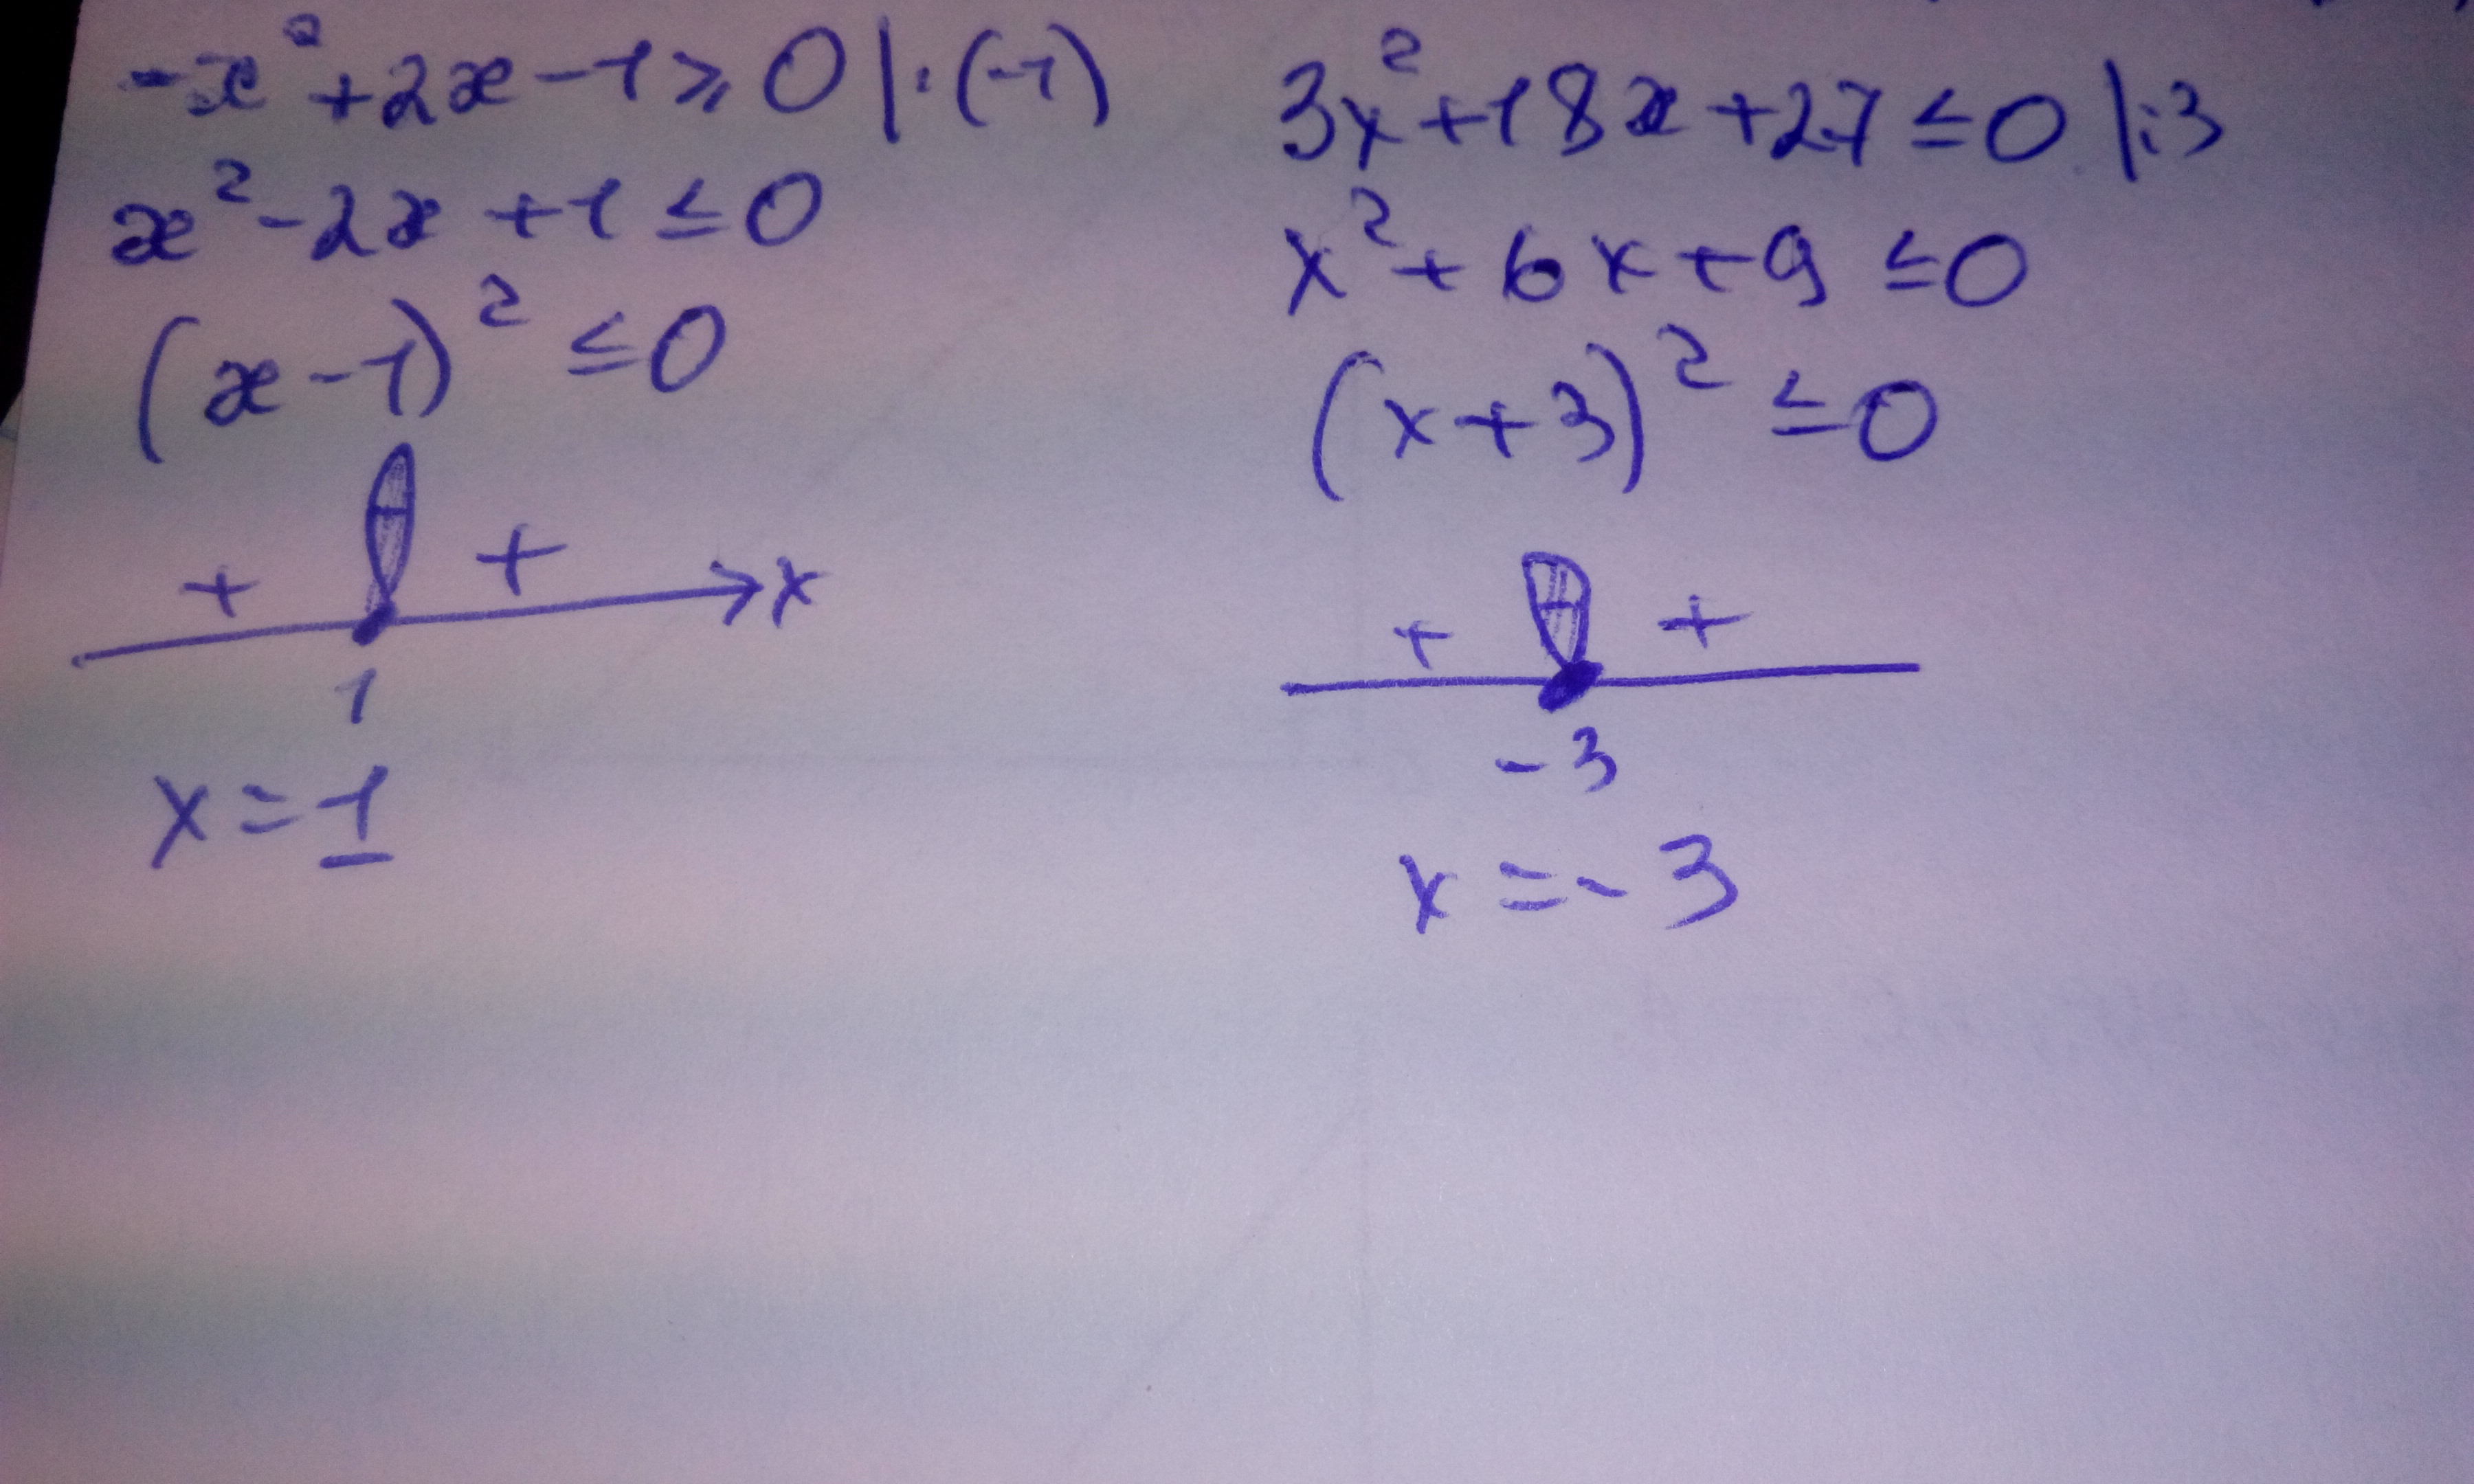 -x²+2x-1⩾0|·(-1)
x²-2x+1≤0
(x-1)²≤0
+ +
x
1
x=1
3x²+18x+27≤0|:3
x²+6x+9≤0
(x+3)²≤0
+ +
-3
x=-3